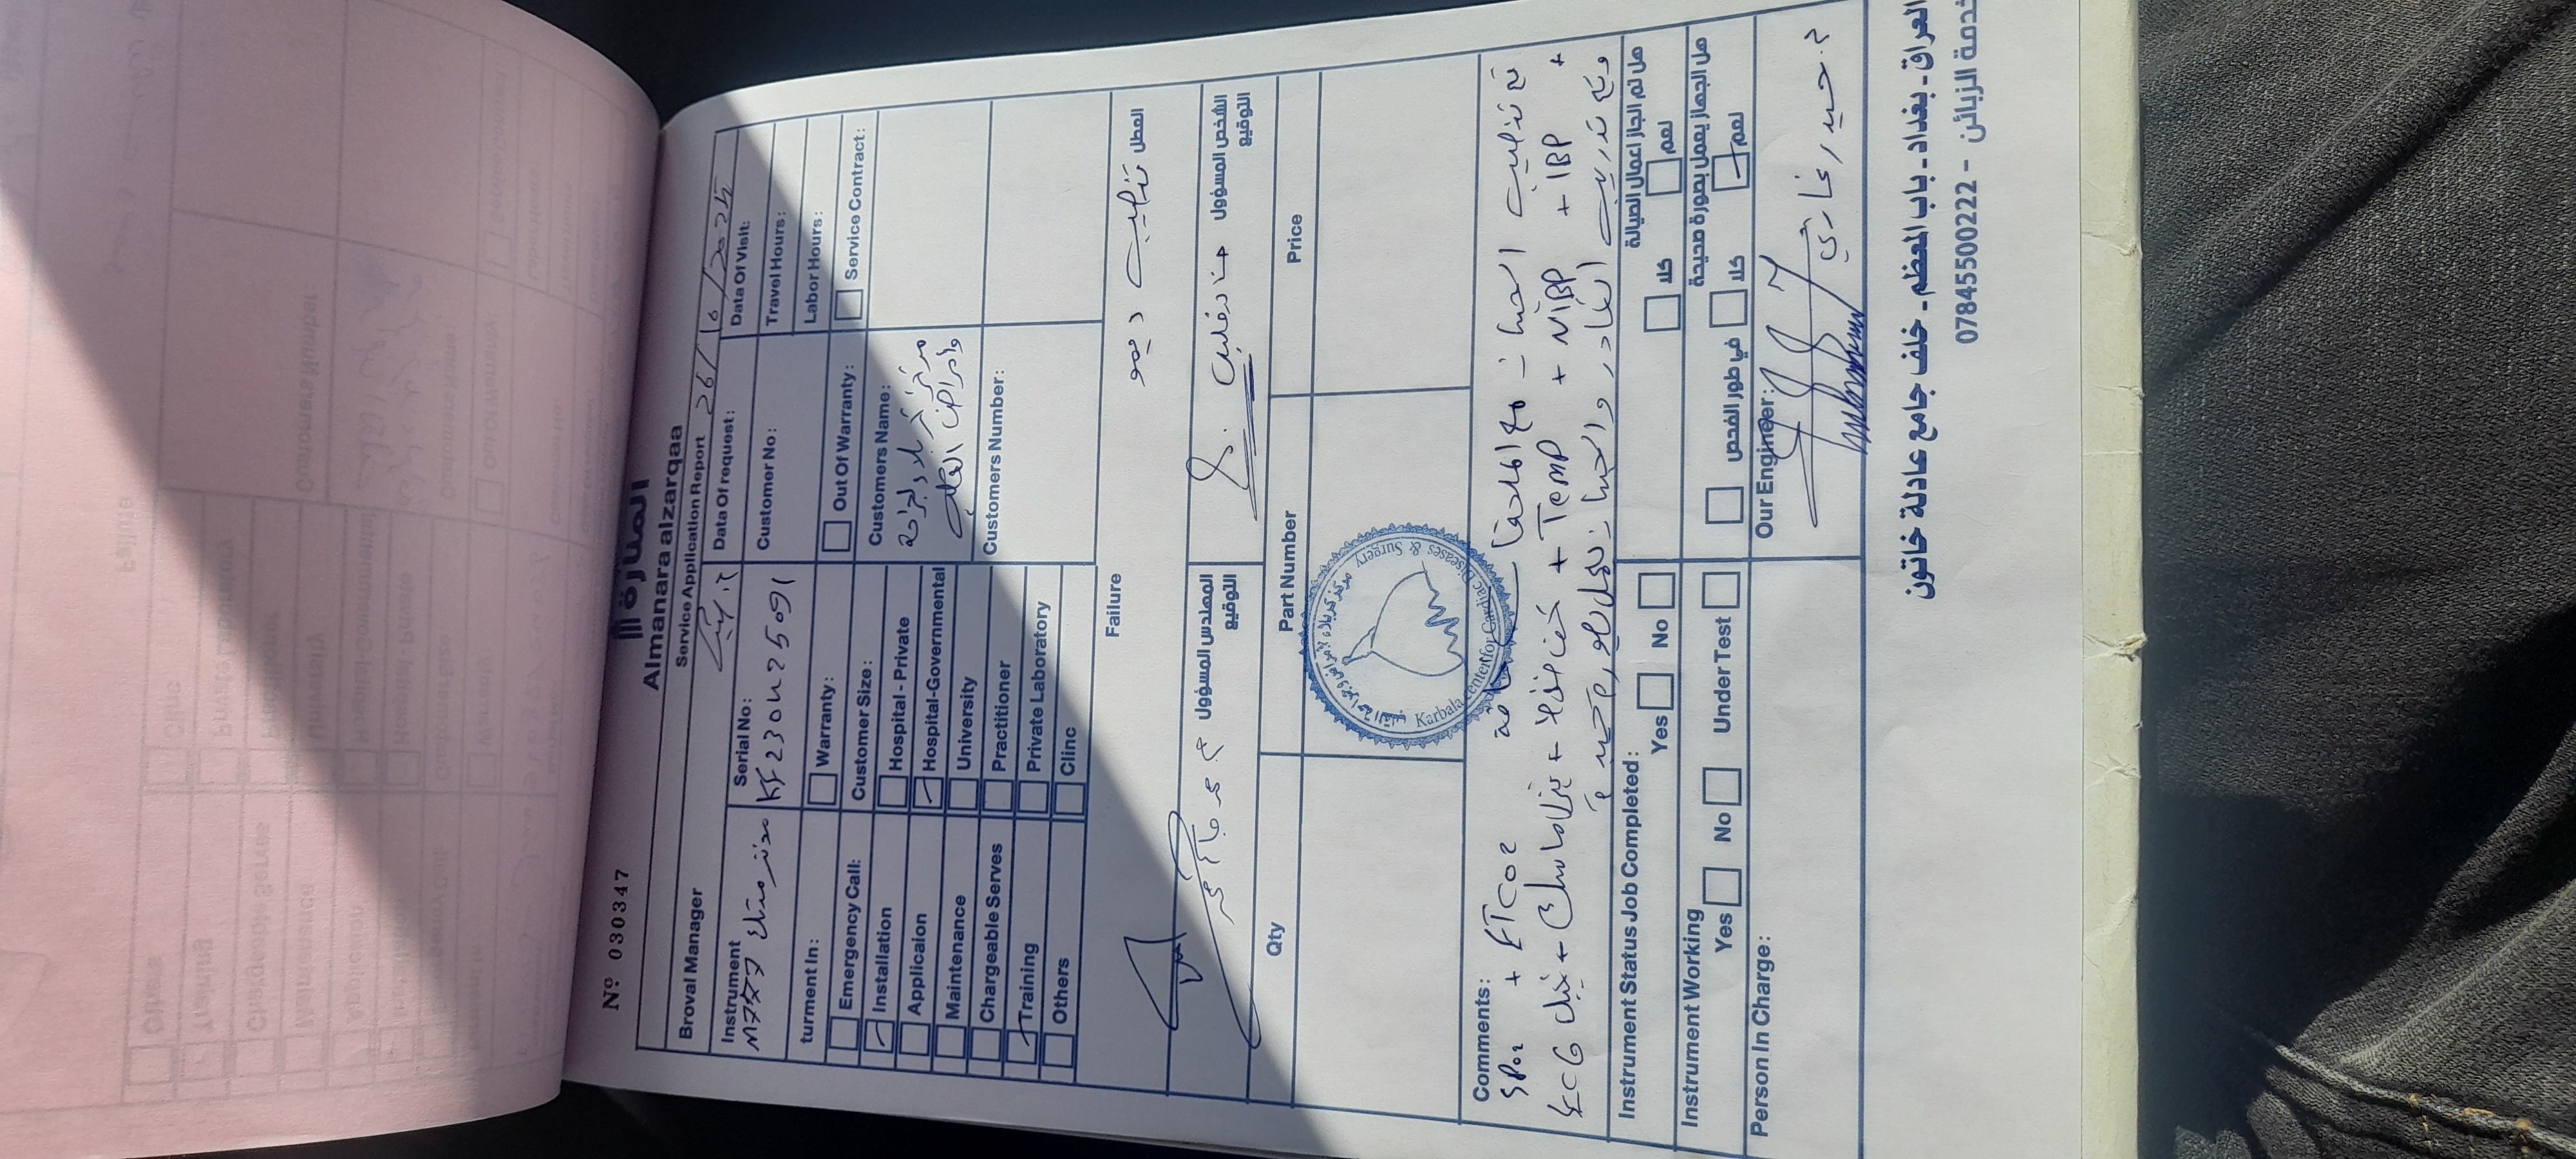 Nº 030347
المنارة
Almanara alzarqaa
Service Application Report 26/10/2025
Broval Manager
Instrument
Serial No:
Data Of request:
Data Of Visit:
KF230N25091
Customer No:
Travel Hours:
turment In:
Warranty:
Out Of Warranty:
Labor Hours:
Service Contract:
Emergency Call:
Installation
Applicaion
Maintenance
Chargeable Serves
Training
Others
Customer Size:
Hospital - Private
Hospital-Governmental
University
Practitioner
Private Laboratory
Clinc
Customers Name:
مركز كربلاء لجراحة
وامراض القلب
Customers Number:
Failure
العطل
تنصيب ديمو
المهندس المسؤول
التوقيع
الشخص المسؤول
التوقيع
Qty
Part Number
Price
Karbala center for Cardiac Diseases & Surgery
Comments:
تم تنصيب الجهاز مع الملحقات
SPO2 + ETCO2
ECG + TEMP + NIBP + IBP +
وتم تدريب الكادر والجهاز يعمل بصورة جيدة
Instrument Status Job Completed:
Yes
No
هل تم انجاز اعمال الصيانة
كلا
نعم
Instrument Working
Yes
No
Under Test
هل الجهاز يعمل بصورة صحيحة
في طور الفحص
كلا
نعم
Person In Charge:
Our Engineer:
م. حيدر غازي
العراق - بغداد - باب المعظم - خلف جامع عادلة خاتون
خدمة الزبائن - 07845500222